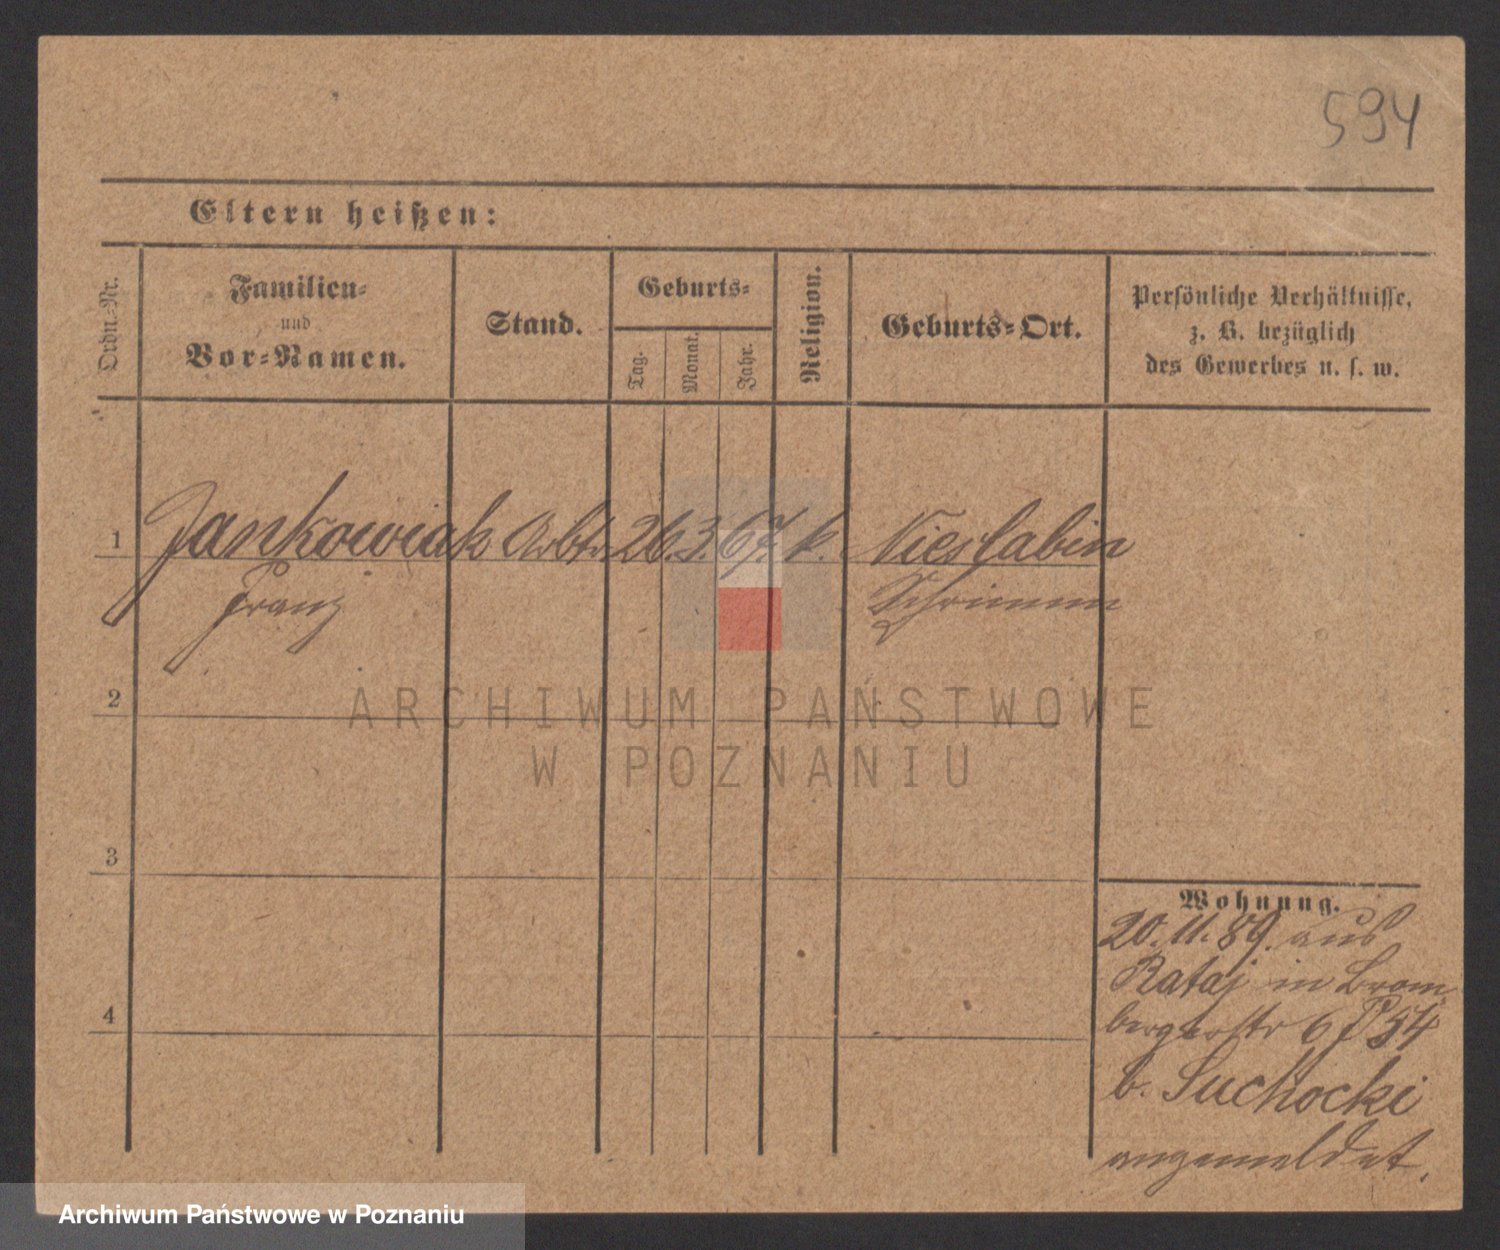 594
Eltern heißen:
Ordn.-Nr.
Familien-
und
Vor-Namen.
Stand.
Geburts-
Tag.
Monat.
Jahr.
Religion.
Geburts-Ort.
Persönliche Verhältnisse,
z. B. bezüglich
des Gewerbes u. s. w.
1 Jankowiak Arbtr. 26. 3. 67. k. Nieslabin
Franz Schrimm
2
3
4
Wohnung.
20. 11. 89. aus
Rataj in Brom
bergerstr 6
b. Suchocki
angemeldet.
ARCHIWUM PAŃSTWOWE
W POZNANIU
Archiwum Państwowe w Poznaniu